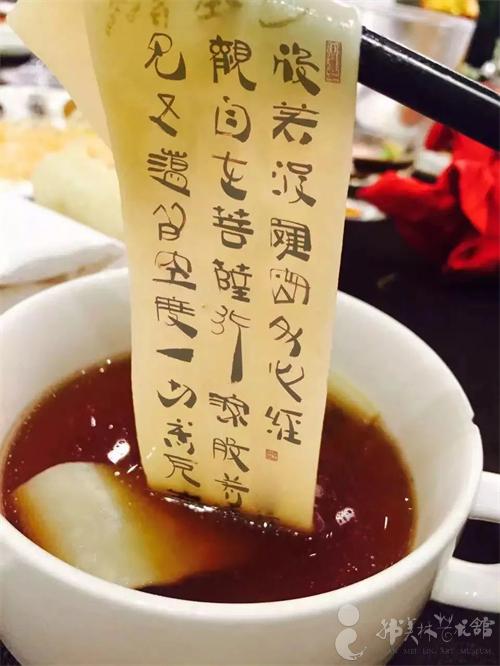 般若波羅蜜多心經
觀自在菩薩行深般若
見五蘊皆空度一切苦厄
韩美林艺术館
HAN MEI LIN ART MUSEUM